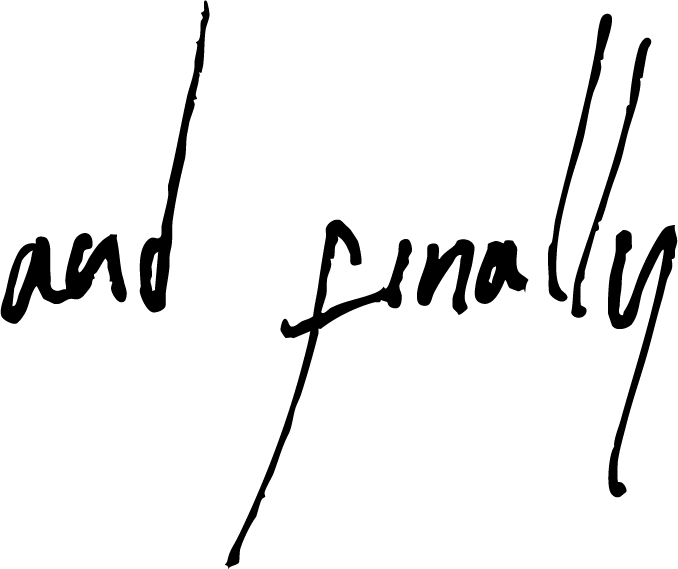 and finally